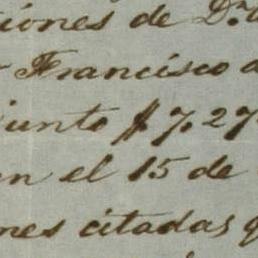 ciones de D.ⁿ
Francisco
junto $ 7,27
en el 15 de
nes citadas